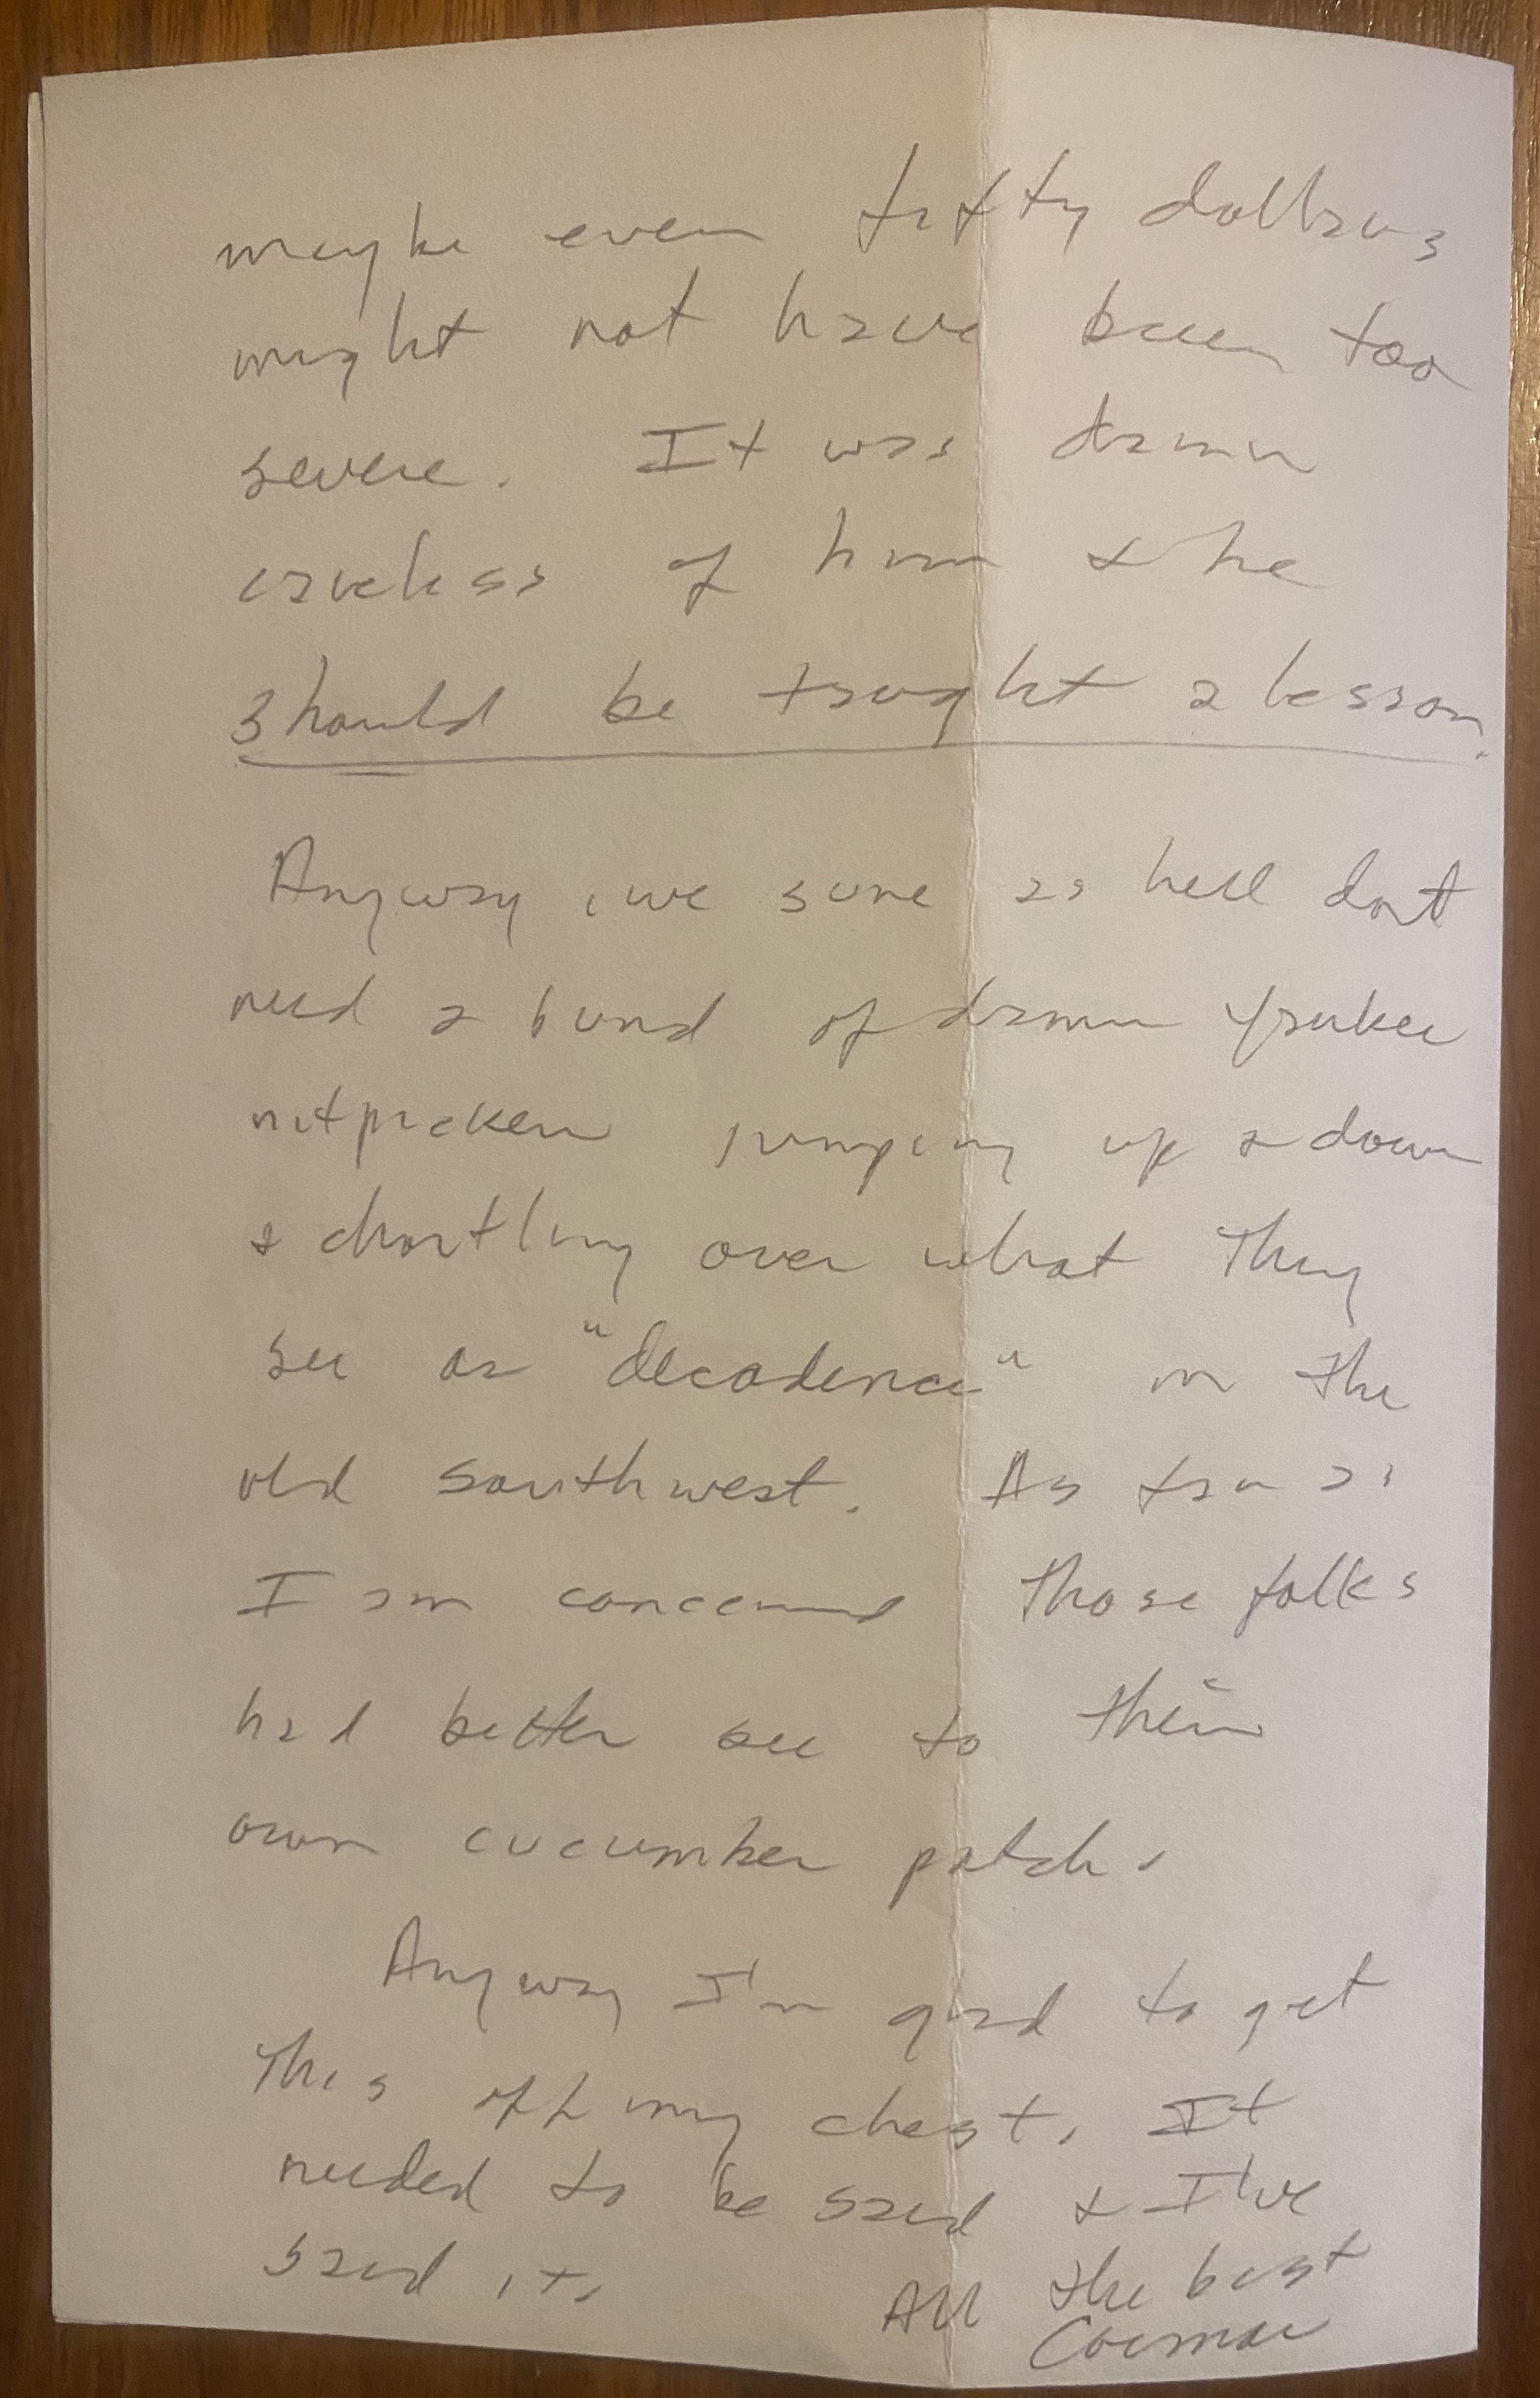 maybe even fifty dollars
might not have been too
severe. It was damn
careless of him & he
should be taught a lesson.
Anyway, we sure as hell dont
need a bund of damn Yankee
nitpicken jumping up & down
& chortling over what they
see as "decadence" in the
old southwest. As far as
I am concerned those folks
had better see to their
own cucumber patch.
Anyway I'm glad to get
this off my chest. It
needed to be said & I've
said it.
All the best
Cormac